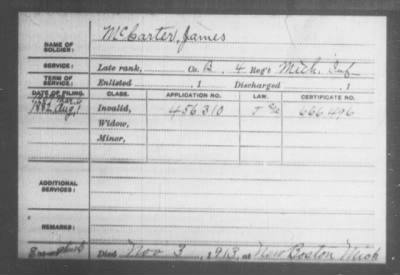 NAME OF SOLDIER: McCarter, James
SERVICE: Late rank, Co. B, 4 Reg't Mich. Inf
TERM OF SERVICE: Enlisted , 1 Discharged , 1
DATE OF FILING. CLASS. APPLICATION NO. LAW. CERTIFICATE NO.
1882 Aug 1 Invalid, 456.310 666.496
Widow,
Minor,
ADDITIONAL SERVICES:
REMARKS:
Died Nov 3, 1913, at New Boston Mich